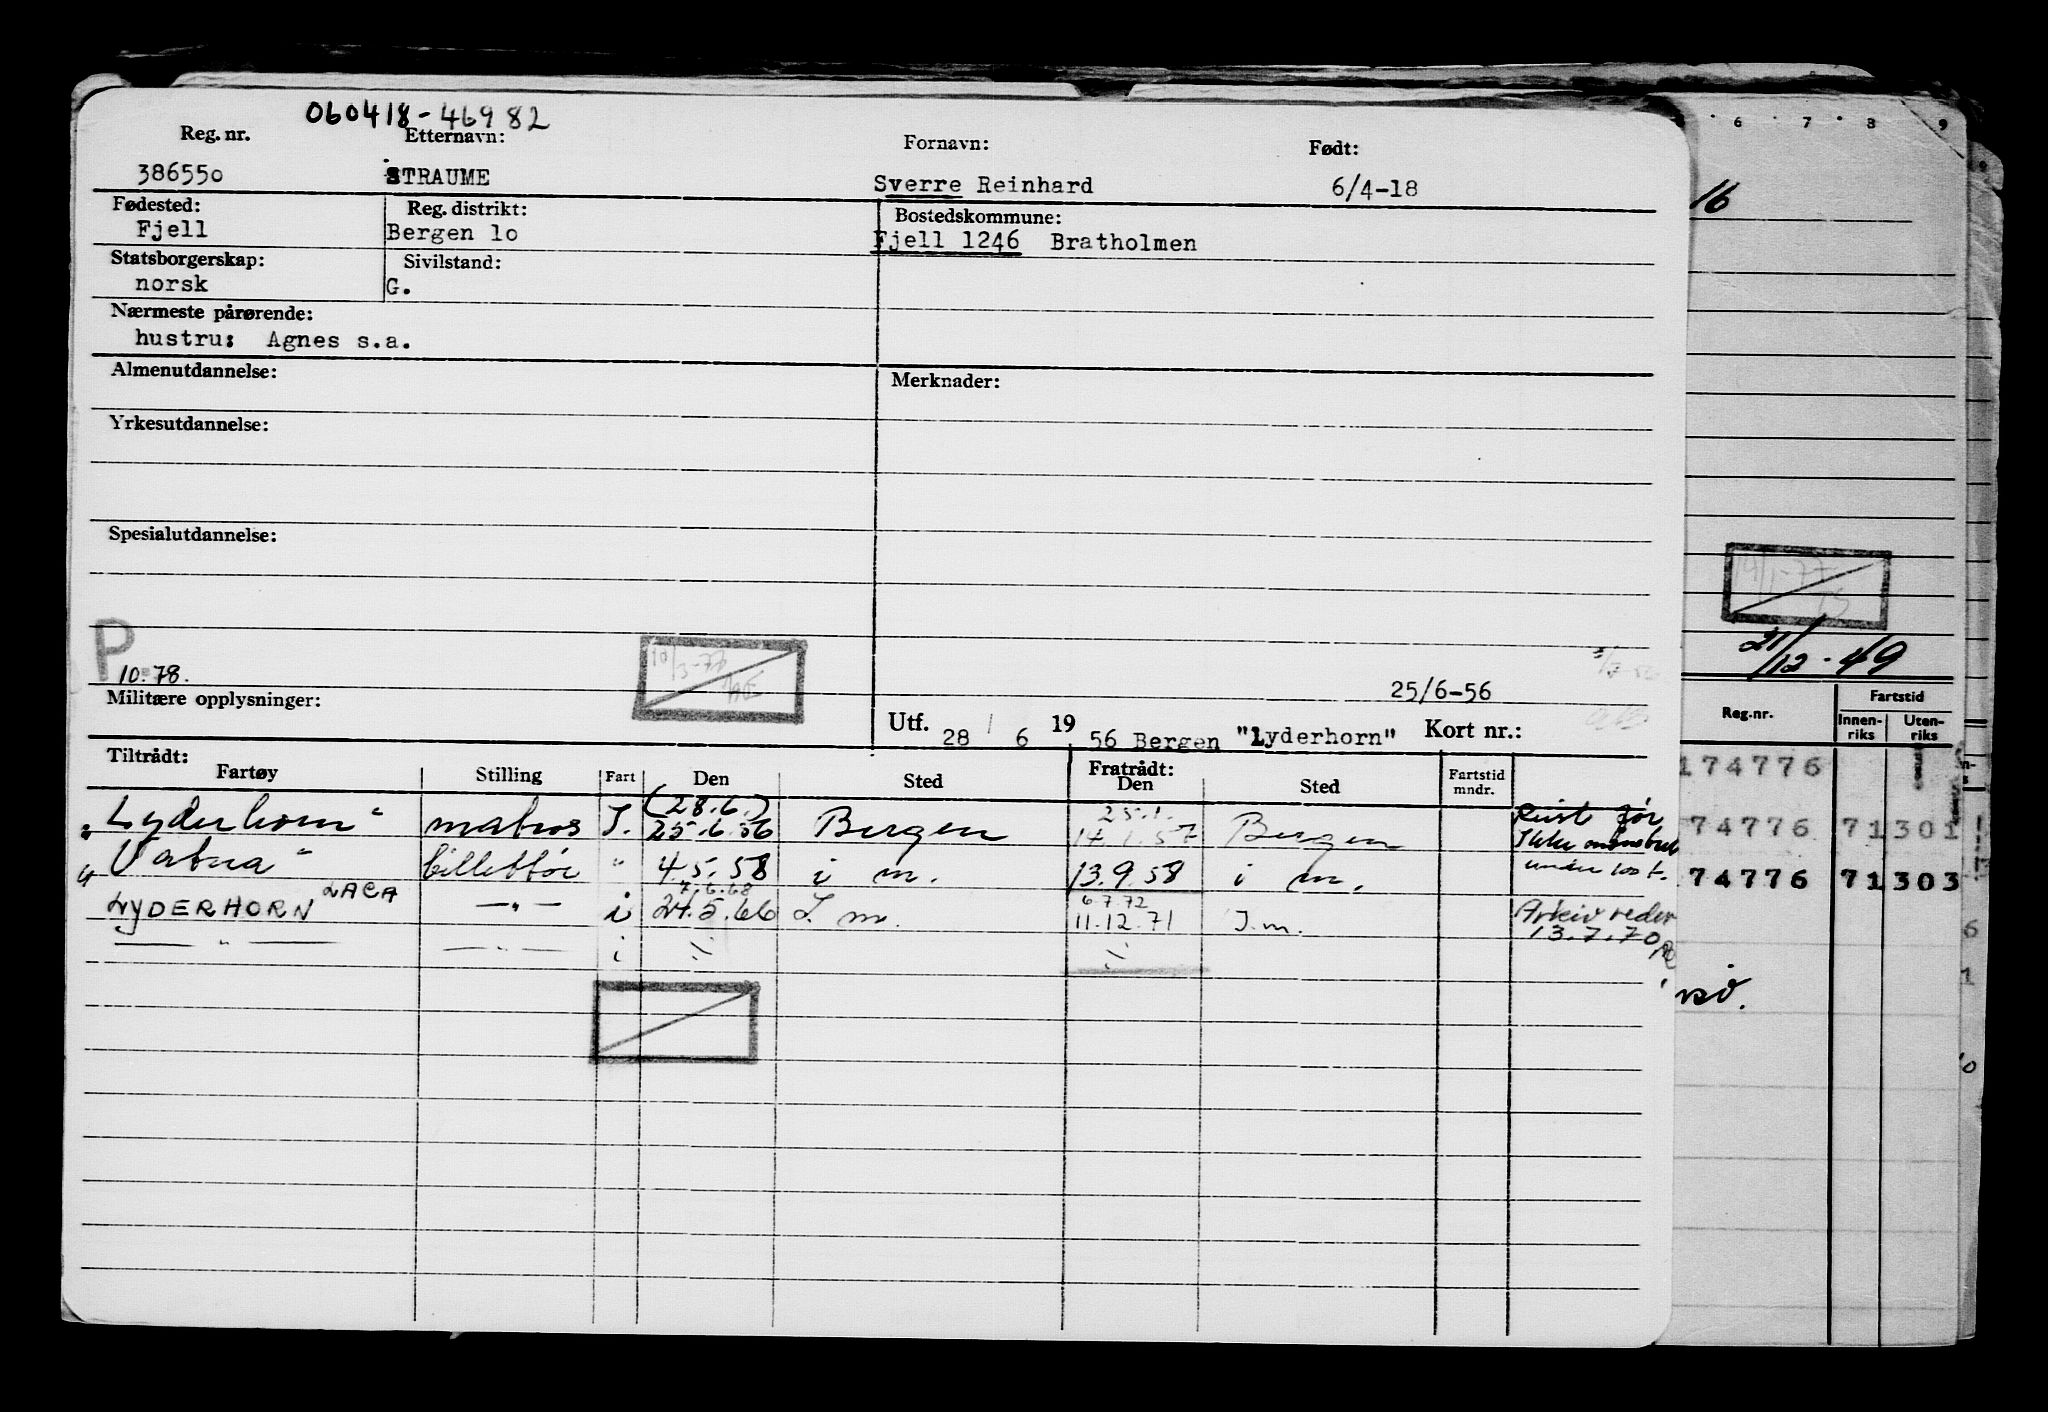 060418-46982
Reg. nr. Etternavn: Fornavn: Født:
386550 STRAUME Sverre Reinhard 6/4-18
Fødested: Reg. distrikt: Bostedskommune:
Fjell Bergen lo Fjell 1246 Bratholmen
Statsborgerskap: Sivilstand:
norsk G.
Nærmeste pårørende:
hustru: Agnes s.a.
Almenutdannelse: Merknader:
Yrkesutdannelse:
Spesialutdannelse:
P
10.78.
25/6-56
Militære opplysninger:
Utf. 28 / 6 19 56 Bergen "Lyderhorn" Kort nr.:
Tiltrådt: Fratrådt:
Fartøy Stilling Fart Den Sted Den Sted Fartstid mndr.
(28.6.) 25.1.
"Lyderhorn" matros I. 25.6.56 Bergen 14.1.57 Bergen
"Vatna" billettør " 4.5.58 i m. 13.9.58 i m. under 100 t.
LACA 7.6.68 6.7.72
LYDERHORN —"— i 24.5.66 I m. 11.12.71 I.m. Arkiv reder
13.7.70
—"— —"— i
6 7 8 9
16
19/1-77
21/12-49
Reg.nr. Fartstid
Innenriks Utenriks
174776
74776 71301
74776 71303
6
1
0